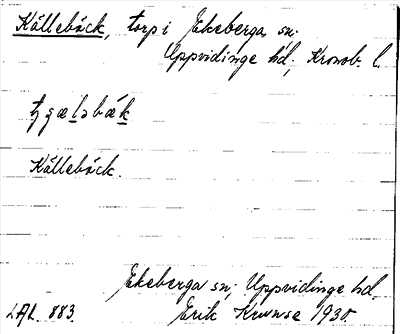 Källebäck, torp i Ekeberga sn.
Uppvidinge hd, Kronob. l.
Källebäck.
Ekeberga sn; Uppvidinge hd.
LAL. 883. Erik 1930.